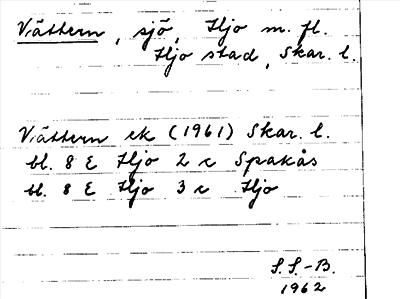 Vättern, sjö, Hjo m. fl.
Hjo stad, Skar. l.
Vättern ek (1961) Skar. l.
bl. 8 E Hjo 2 c Spakås
bl. 8 E Hjo 3 c Hjo
S. S.-B.
1962